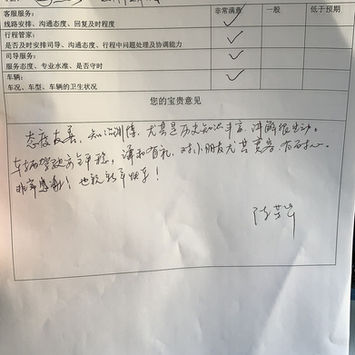 客服服务： 非常满意 一般 低于预期
线路安排、沟通态度、回复及时程度
行程管家：
是否及时安排司导、沟通态度、行程中问题处理及协调能力
司导服务：
服务态度、专业水准、是否守时
车辆：
车况、车型、车辆的卫生状况
您的宝贵意见
态度友善，知识训练，尤其是历史知识丰富，讲解很生动。
车辆驾驶安全平稳，谦和有礼，对小朋友尤其宽容 有耐心。
非常感谢！也祝新年快乐！